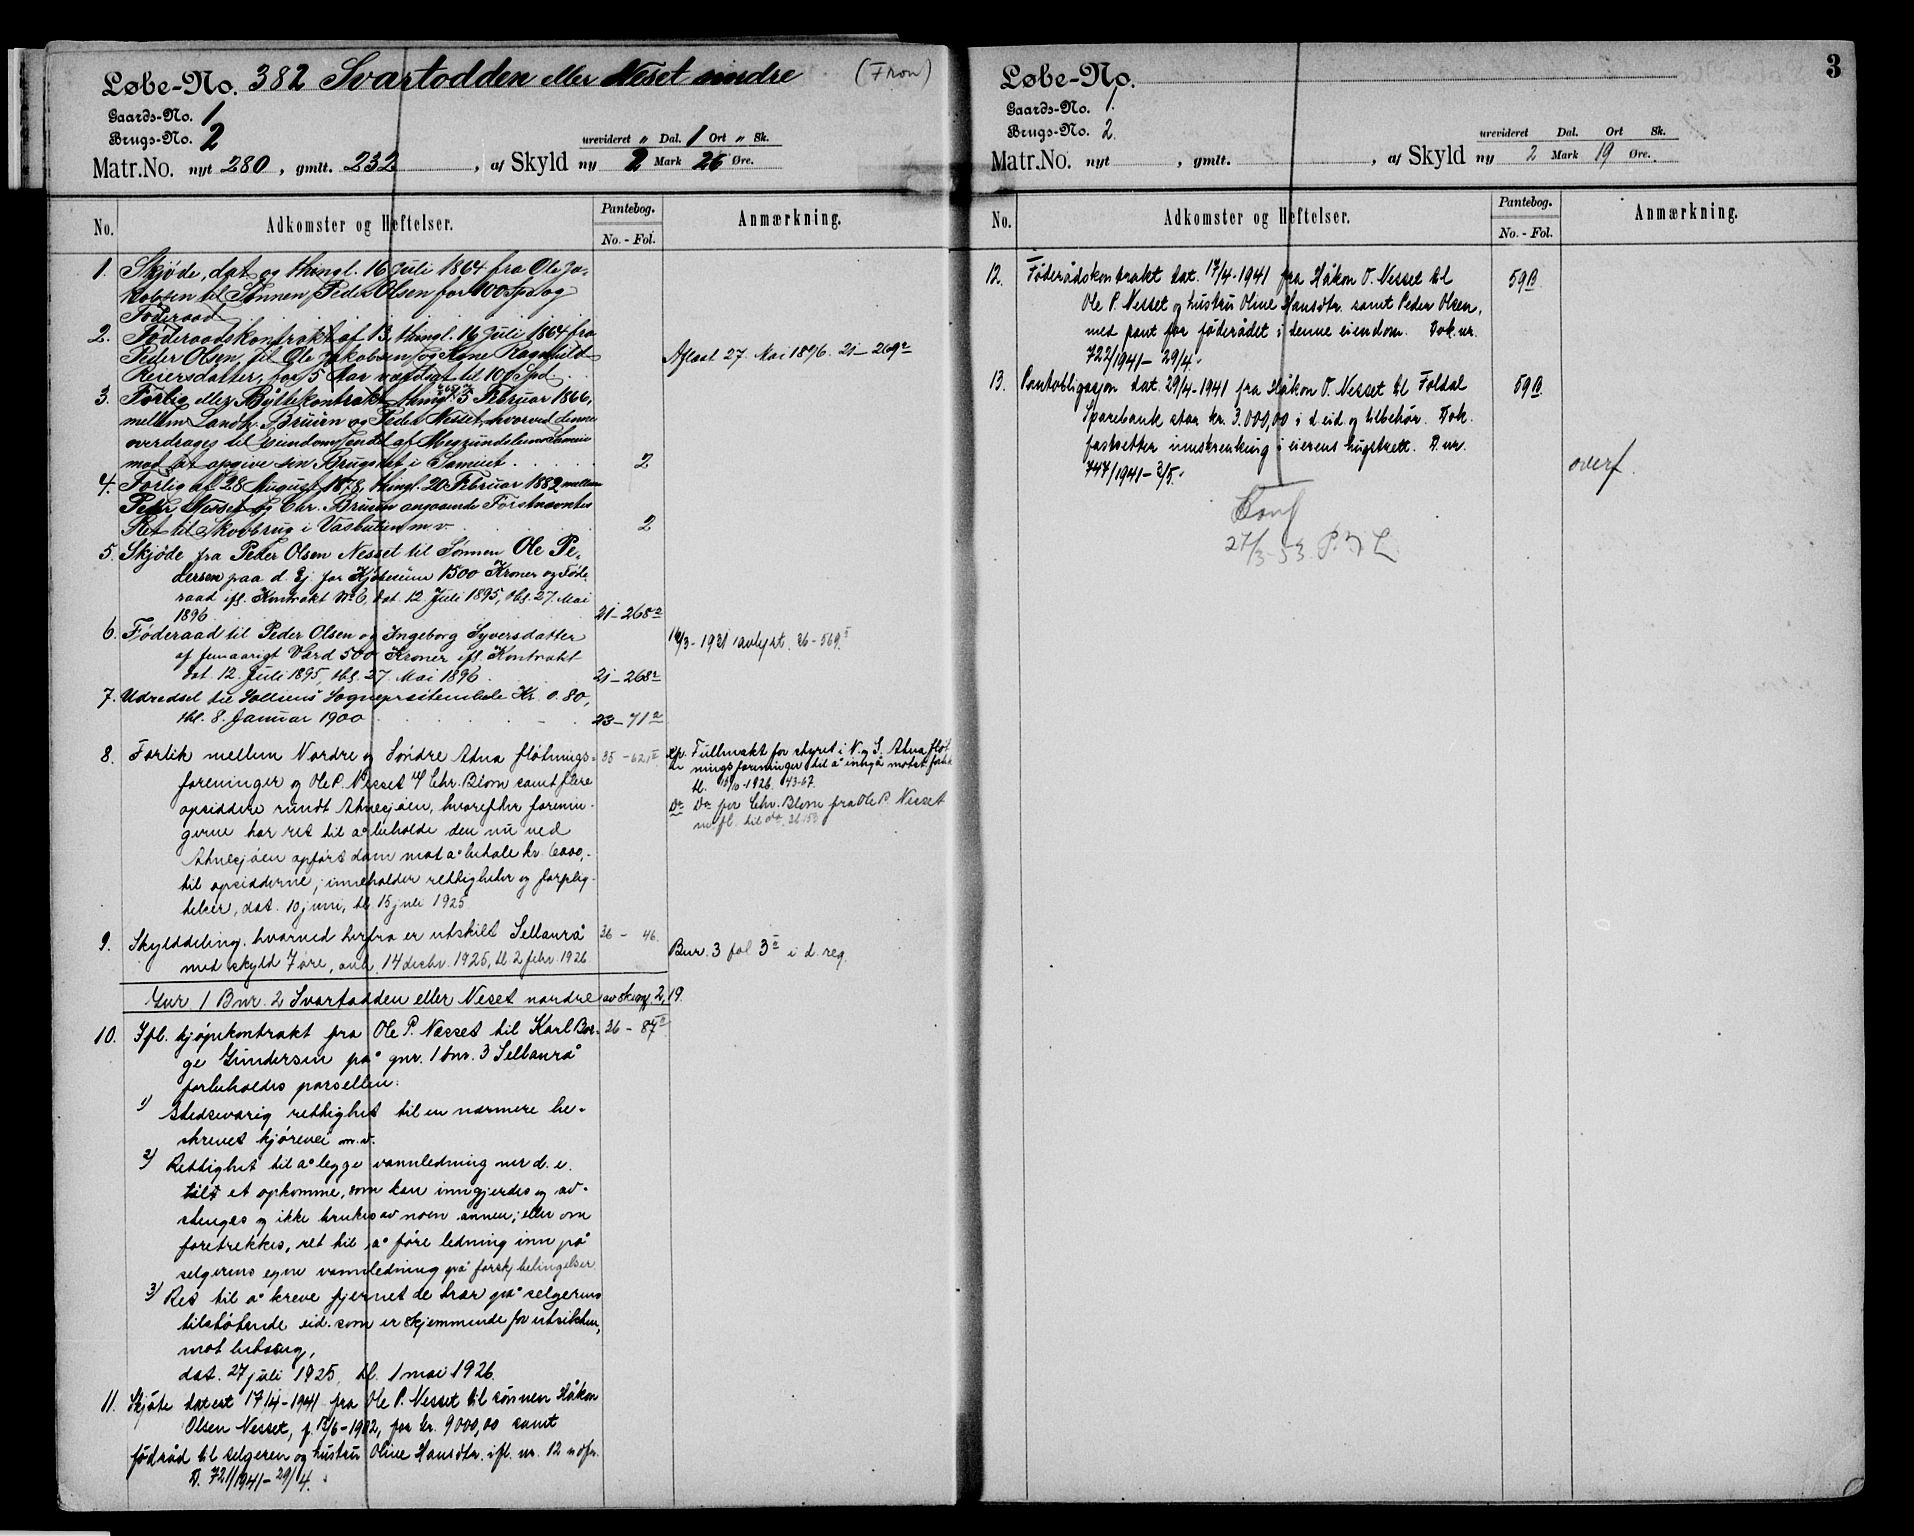 Løbe-No. 382 Svartodden eller Neset nordre (Fron)
Gaards-No. 1
Brugs-No. 2
urevideret " Dal. 1 Ort " Sk.
Matr.No. nyt 280, gmlt. 232, af Skyld ny 2 Mark 26 Øre.
No. Adkomster og Heftelser. Pantebog. No. - Fol. Anmærkning.
1. Skjøde, dat og thingl. 16 Juli 1864 fra Ole Ja-
kobsen til Sønnen Peder Olsen for 100 Spd og
Føderaad
2. Føderaadskontrakt af 13, thingl. 16 Juli 1864 fra
Peder Olsen til Ole Jakobsen og Kone Ragnhild Aflæst 27. Mai 1896. 21-269a
Reiersdatter, for 5 Aar værdsat til 100 Spd.
3. Forlig eller Byttekontrakt thingl. 5 Februar 1866,
mellem Landh. Bruun og Peder Nesset, hvorved denne
overdrages til Eiendom endel af Sameie
mod at opgive sin Brugsret i Sameiet 2
4. Forlig af 28 August 1878, thingl. 20 Februar 1882 mellem
Peder Nesset og Chr. Bruun angaaende Førstnævntes
Ret til Skovbrug i m. v. 2
5. Skjøde fra Peder Olsen Nesset til Sønnen Ole Pe-
dersen paa d. Ej. for Kjøbesum 1500 Kroner og Føde-
raad ifl. Kontrakt No 6, dat. 12. Juli 1895, tbl. 27. Mai
1896 21-268a
6. Føderaad til Peder Olsen og Ingeborg Syversdatter 16/3-1921 avlyst. 26-569.
af femaarigt Værd 500 Kroner ifl. Kontrakt
dat. 12. Juli 1895, tbl. 27 Mai 1896 21-268a
7. Udredsel til Solliens Sogneprestembede Kr. 0.80,
tbl. 8. Januar 1900 23-71a
8. Forlik mellem Nordre og Søndre Atna fløtnings- 35-621 Fullmakt for styret i N. og S. Atna fløt-
foreninger og Ole P. Nesset v/ Chr. Blom samt flere ningsforeninger til å inngå motst. forlik
opsiddere rundt Atnesjøen, hvorefter forenin- tl. 1926. 43-67.
gerne har ret til a beholde den nu ved Do Do for Chr. Blom fra Ole P. Nesset
Atnesjøen opførs dam mot a betale kr. 6000,- m. fl. til do.
til opsidderne; inneholder rettigheter og forplig-
telser, dat. 10 juni, tl. 15 juli 1925
9. Skylddeling, hvorved herfra er utskilt Sellaurå 36 - 46. Bnr. 3 fol 3a i d. reg.
med skyld 7 øre, avh. 14 decbr. 1925, tl. 2 febr. 1926
Gnr. 1 Bnr. 2 Svartodden eller Neset nordre av skyld 2,19.
10. Ifl. kjøpekontrakt fra Ole P. Nesset til Karl Bor- 36 - 87
ge Gundersen på gnr. 1 bnr. 3 Sellaurå
forbeholdes parsellen:
1) Stedsevarig rettighet til en nærmere be-
skrevet kjørevei m. v.
2) Rettighet til a legge vannledning over d. e.
til et opkomme, som kan inngjerdes og av-
stenges og ikke brukes av noen annen; eller om
foretrekkes, ret til a føre ledning inn på
selgerens egne vannledning på forsk. betingelser
3) Ret til a kreve fjernet de trær på selgerens
tilstøtende eid. som er skjemmende for utsikten,
mot betaling,
dat. 27 juli 1925, tl. 1 mai 1926.
11. Skjøte datert 17/4-1941 fra Ole P. Nesset til sønnen Håkon
Olsen Nesset, f. 13/6-1902, for kr. 9000,00 samt
fødråd til selgeren og hustru Oline Hansdtr. ifl. nr. 12 ndfr.
D. 721/1941-29/4.
3
Løbe-No.
Gaards-No. 1.
Brugs-No. 2.
urevideret Dal. Ort Sk.
Matr.No. nyt , gmlt. , af Skyld ny 2 Mark 19 Øre.
No. Adkomster og Heftelser. Pantebog. No. - Fol. Anmærkning.
12. Føderådskontrakt dat. 17/4-1941 fra Håkon O. Nesset til 59B.
Ole P. Nesset og hustru Oline Hansdtr. samt Peder Olsen,
med pant for føderådet i denne eiendom. Dok. nr.
722/1941-29/4.
13. Pantobligasjon dat. 29/4-1941 fra Håkon O. Nesset til Foldal 59B.
Sparebank stor kr. 3.000,00 i d. eid. og tilbehør. Dok.
fastsetter innskrenkning i eierens hugstrett. D. nr.
747/1941-2/5. overf.
Konf
27/3-53.